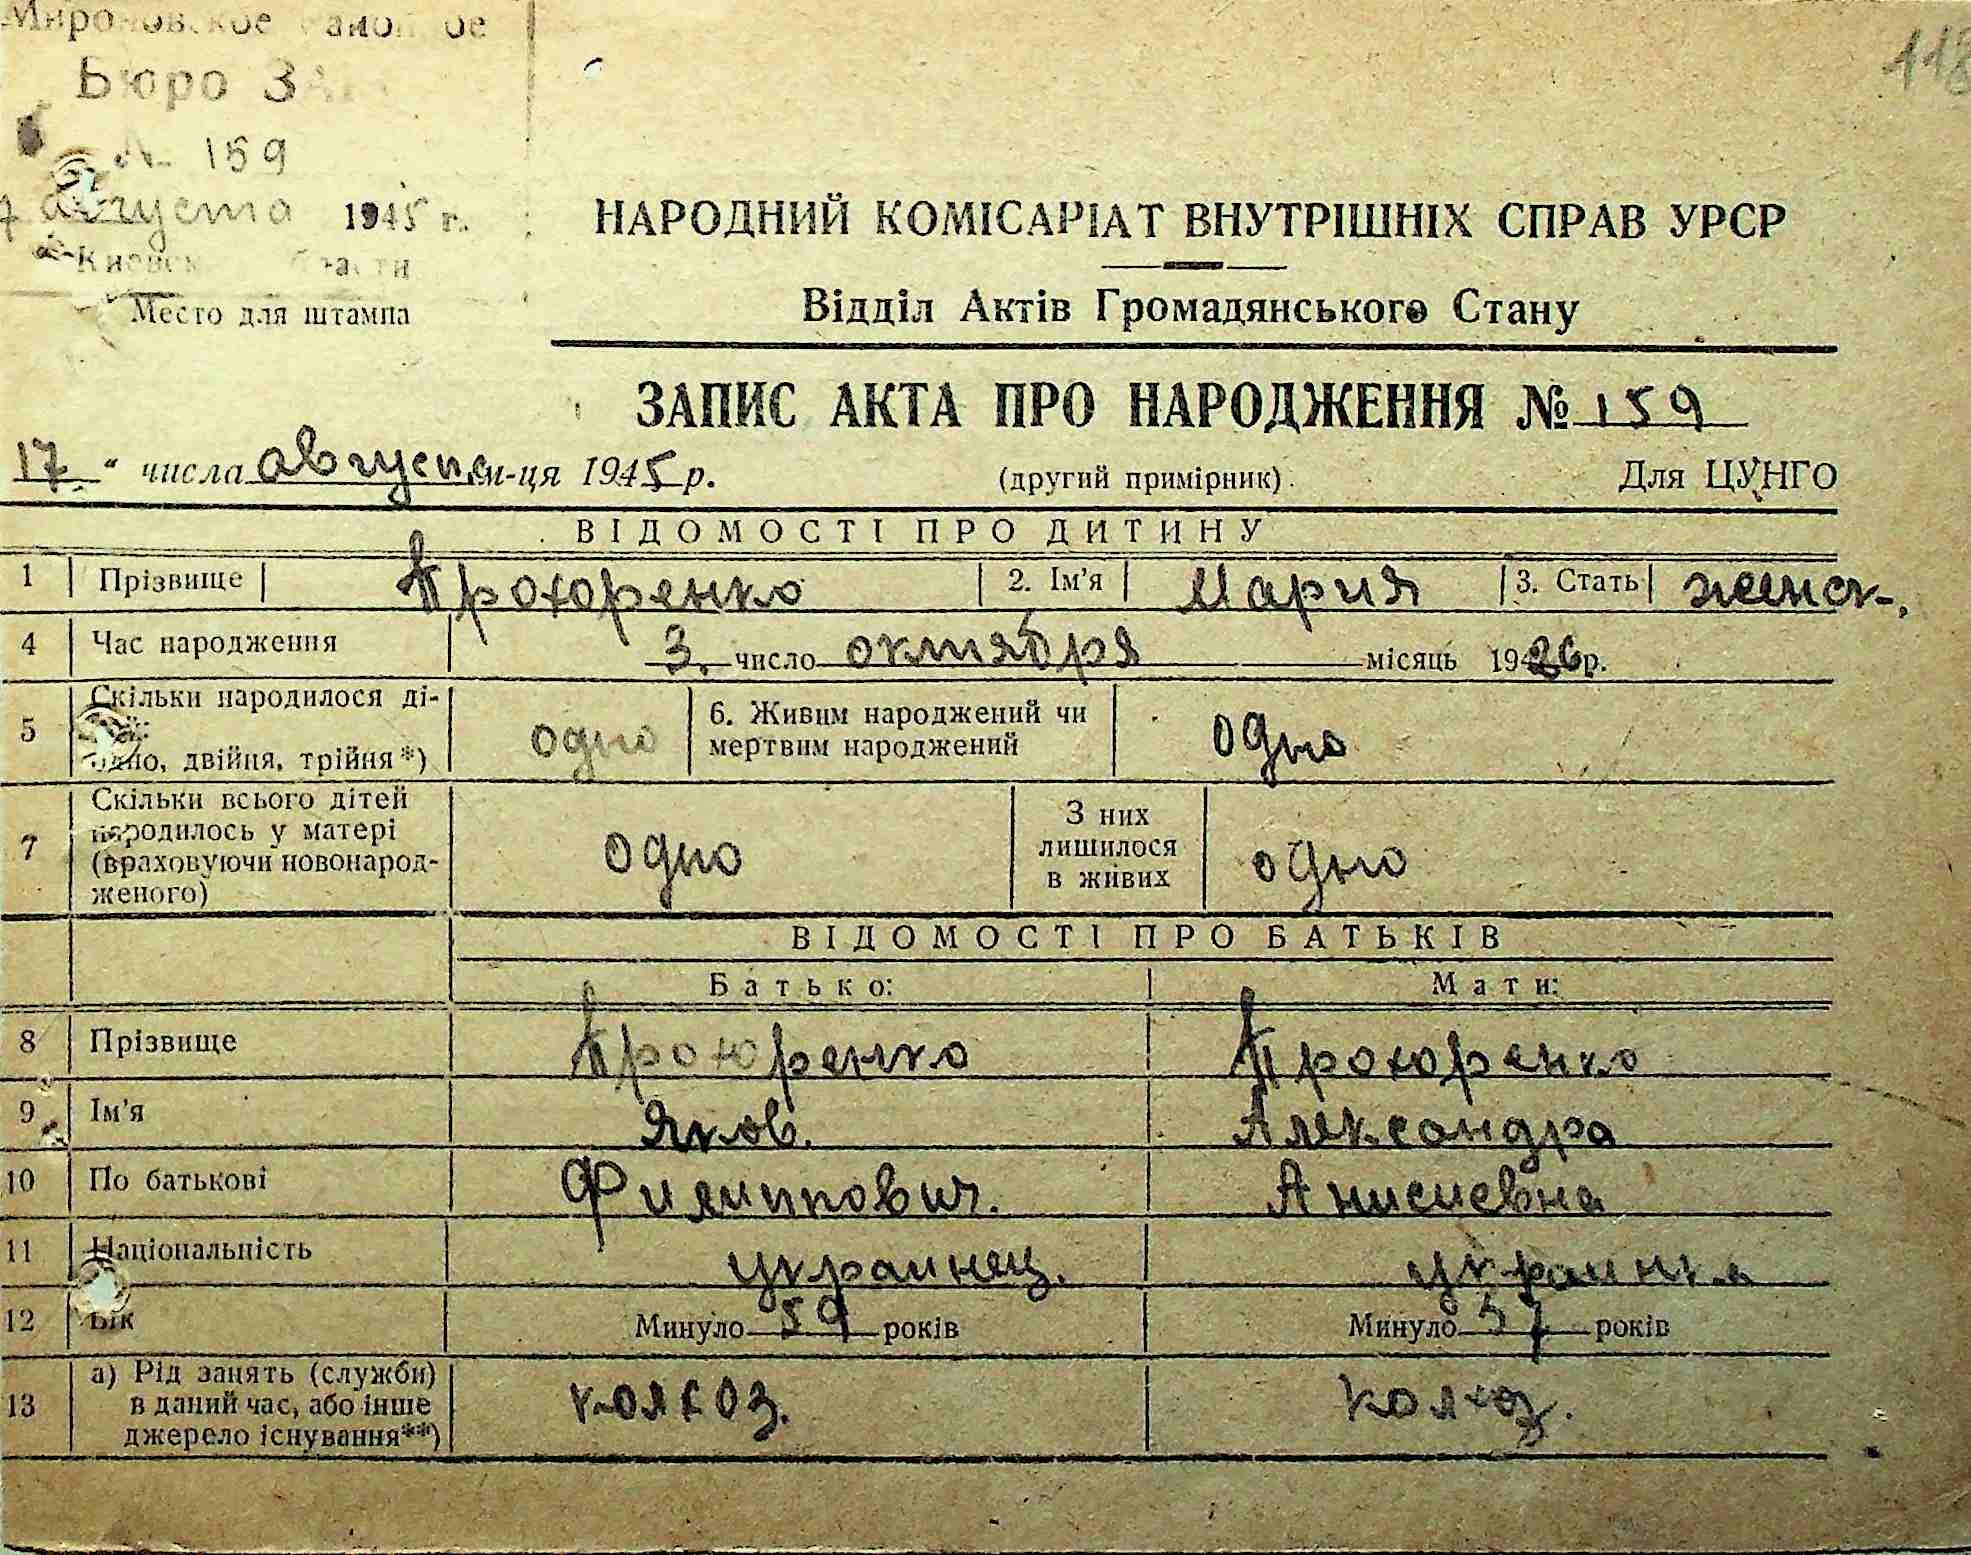 Мироновское районное
Бюро ЗАГС
№ 159
17 августа 1945 г.
Киевской области
Место для штампа
118
НАРОДНИЙ КОМІСАРІАТ ВНУТРІШНІХ СПРАВ УРСР
Відділ Актів Громадянського Стану
ЗАПИС АКТА ПРО НАРОДЖЕННЯ № 159
17 " числа августа м-ця 1945 р. (другий примірник). Для ЦУНГО
ВІДОМОСТІ ПРО ДИТИНУ
1 Прізвище Прохоренко 2. Ім'я Мария 3. Стать женск.
4 Час народження 3. число октября місяць 1926 р.
5 Скільки народилося ді-
одно, двійня, трійня*) одно 6. Живим народжений чи
мертвим народжений одно
7 Скільки всього дітей
народилось у матері
(враховуючи новонарод-
женого) одно З них
лишилося
в живих одно
ВІДОМОСТІ ПРО БАТЬКІВ
Батько: Мати:
8 Прізвище Прохоренко Прохоренко
9 Ім'я Яков. Александра
10 По батькові Филиппович. Анисиевна
11 Національність украинец. украинка
12 Вік Минуло 59 років Минуло 57 років
13 а) Рід занять (служби)
в даний час, або інше
джерело існування**) колхоз. колхоз.